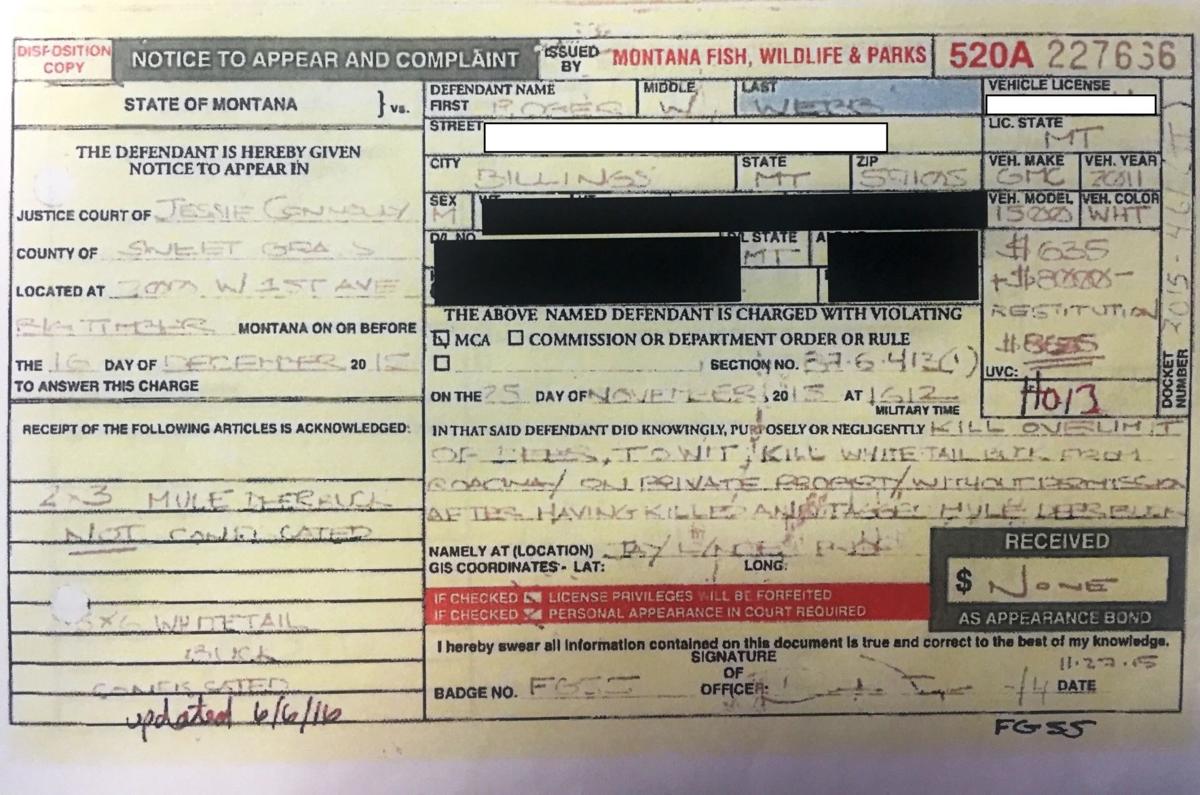 DISPOSITION COPY
NOTICE TO APPEAR AND COMPLAINT
ISSUED BY
MONTANA FISH, WILDLIFE & PARKS
520A 227636
STATE OF MONTANA } vs.
THE DEFENDANT IS HEREBY GIVEN
NOTICE TO APPEAR IN
JUSTICE COURT OF JESSIE CONNOLLY
COUNTY OF SWEET GRASS
LOCATED AT 200 W 1ST AVE
BIG TIMBER MONTANA ON OR BEFORE
THE 16 DAY OF DECEMBER 2015
TO ANSWER THIS CHARGE
RECEIPT OF THE FOLLOWING ARTICLES IS ACKNOWLEDGED:
2x3 MULE DEER BUCK
NOT CONFISCATED
WHITETAIL
BUCK
CONFISCATED
updated 6/6/16
DEFENDANT NAME
FIRST ROGER MIDDLE W. LAST WEBB
STREET
CITY BILLINGS STATE MT ZIP
SEX M
D/L NO. STATE MT
THE ABOVE NAMED DEFENDANT IS CHARGED WITH VIOLATING
MCA COMMISSION OR DEPARTMENT ORDER OR RULE
SECTION NO. 87-6-413(1)
ON THE 25 DAY OF NOVEMBER 2015 AT 1612
MILITARY TIME
IN THAT SAID DEFENDANT DID KNOWINGLY, PURPOSELY OR NEGLIGENTLY KILL OVERLIMIT
OF DEER, TO WIT; KILL WHITETAIL BUCK FROM
ROADWAY ON PRIVATE PROPERTY WITHOUT PERMISSION
AFTER HAVING KILLED AND TAGGED MULE DEER BUCK
NAMELY AT (LOCATION)
GIS COORDINATES - LAT: LONG:
IF CHECKED LICENSE PRIVILEGES WILL BE FORFEITED
IF CHECKED PERSONAL APPEARANCE IN COURT REQUIRED
RECEIVED
$ NONE
AS APPEARANCE BOND
I hereby swear all information contained on this document is true and correct to the best of my knowledge.
BADGE NO. FG55
SIGNATURE OF OFFICER:
11-27-15
DATE
FG55
VEHICLE LICENSE
LIC. STATE
MT
VEH. MAKE GMC VEH. YEAR 2011
VEH. MODEL 1500 VEH. COLOR WHT
$635
+$8000-
RESTITUTION
$8635
UVC:
DOCKET NUMBER